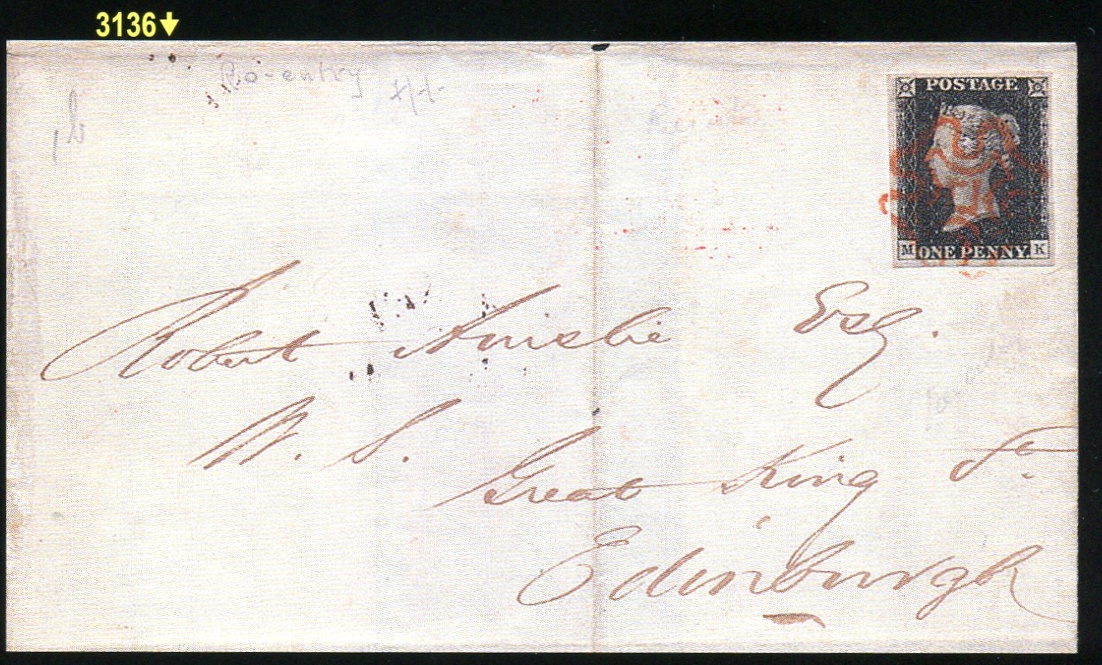 3136
Re-entry
1b
POSTAGE
M ONE PENNY. K
Robert Ainslie Esq.
W. S.
Great King St.
Edinburgh